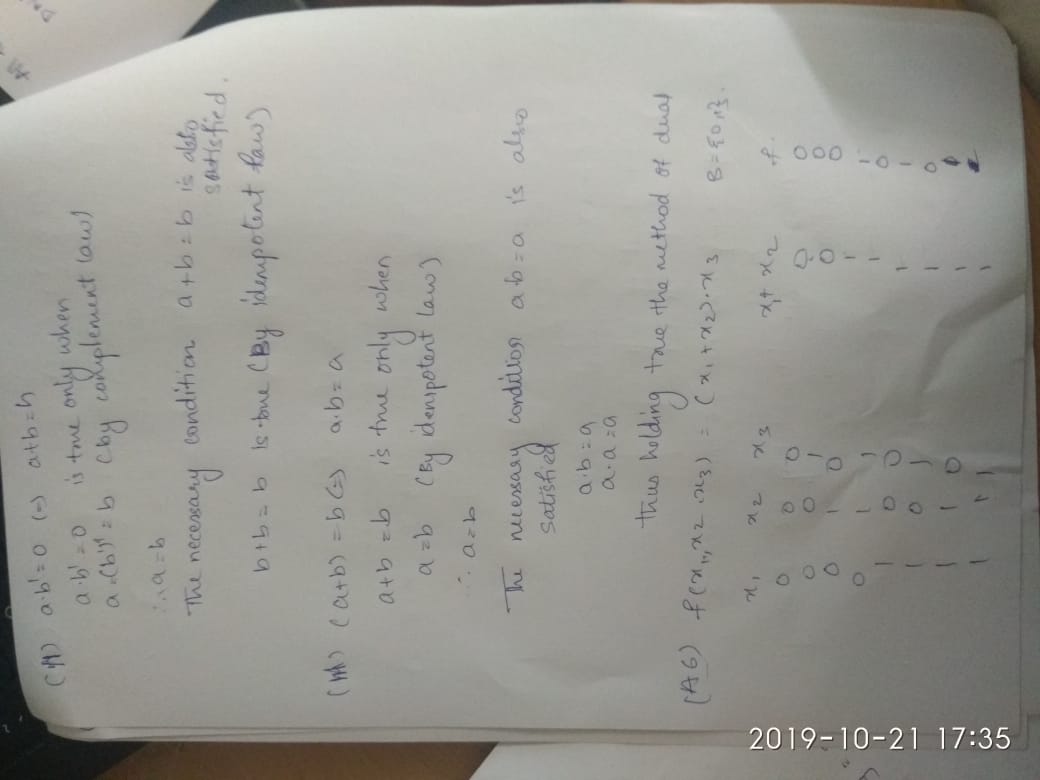 a·b'=0 (=) a+b=b
a·b'=0 is true only when
a=(b')'=b (by complement law)
∴ a=b
The necessary condition a+b=b is also
satisfied.
b+b=b is true (By idempotent law)
(a+b)=b (=) a·b=a
a+b=b is true only when
a=b (By idempotent law)
∴ a=b
The necessary condition ab=a is also
satisfied
a·b=a
a·a=a
thus holding true the method of dual
(A6) f(x1,x2,x3) = (x1+x2)·x3 B={0,1}.
x1 x2 x3 x1+x2 f.
0 0 0 0 0
0 0 1 0 0
0 1 0 1 0
0 1 1 1 1
1 0 0 1 0
1 0 1 1 1
1 1 0 1 0
1 1 1 1
2019-10-21 17:35